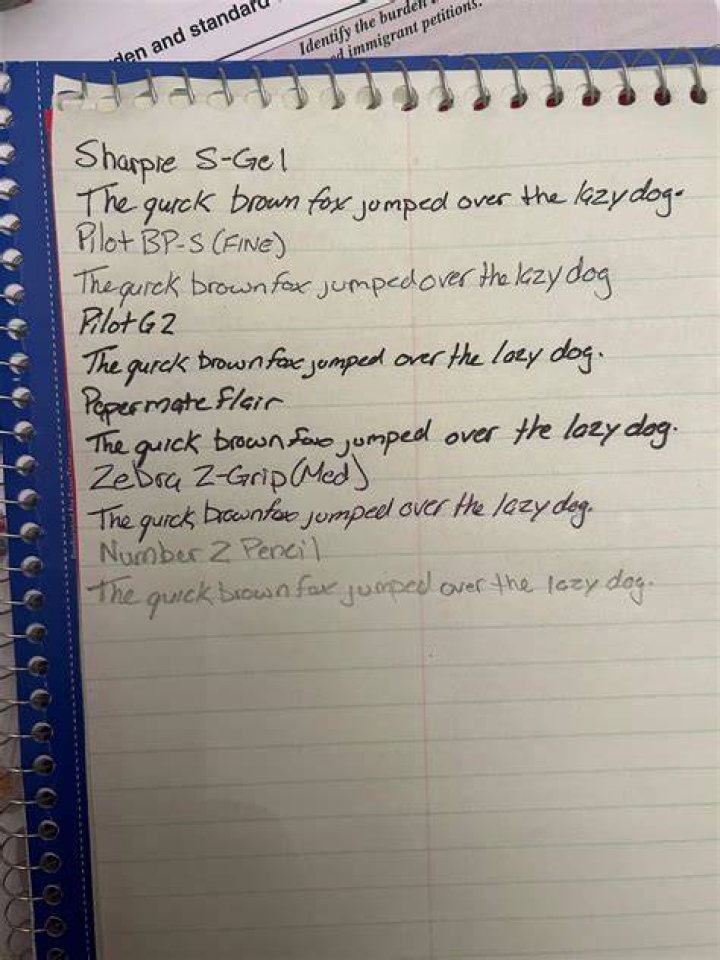 den and standard
Identify the burden
d immigrant petitions.
Sharpie S-Gel
The quick brown fox jumped over the lazy dog.
Pilot BP-S (FINE)
The quick brown fox jumped over the lazy dog
Pilot G2
The quick brown fox jumped over the lazy dog.
Papermate Flair
The quick brown fox jumped over the lazy dog.
Zebra Z-Grip (Med)
The quick brown fox jumped over the lazy dog.
Number 2 Pencil
The quick brown fox jumped over the lazy dog.